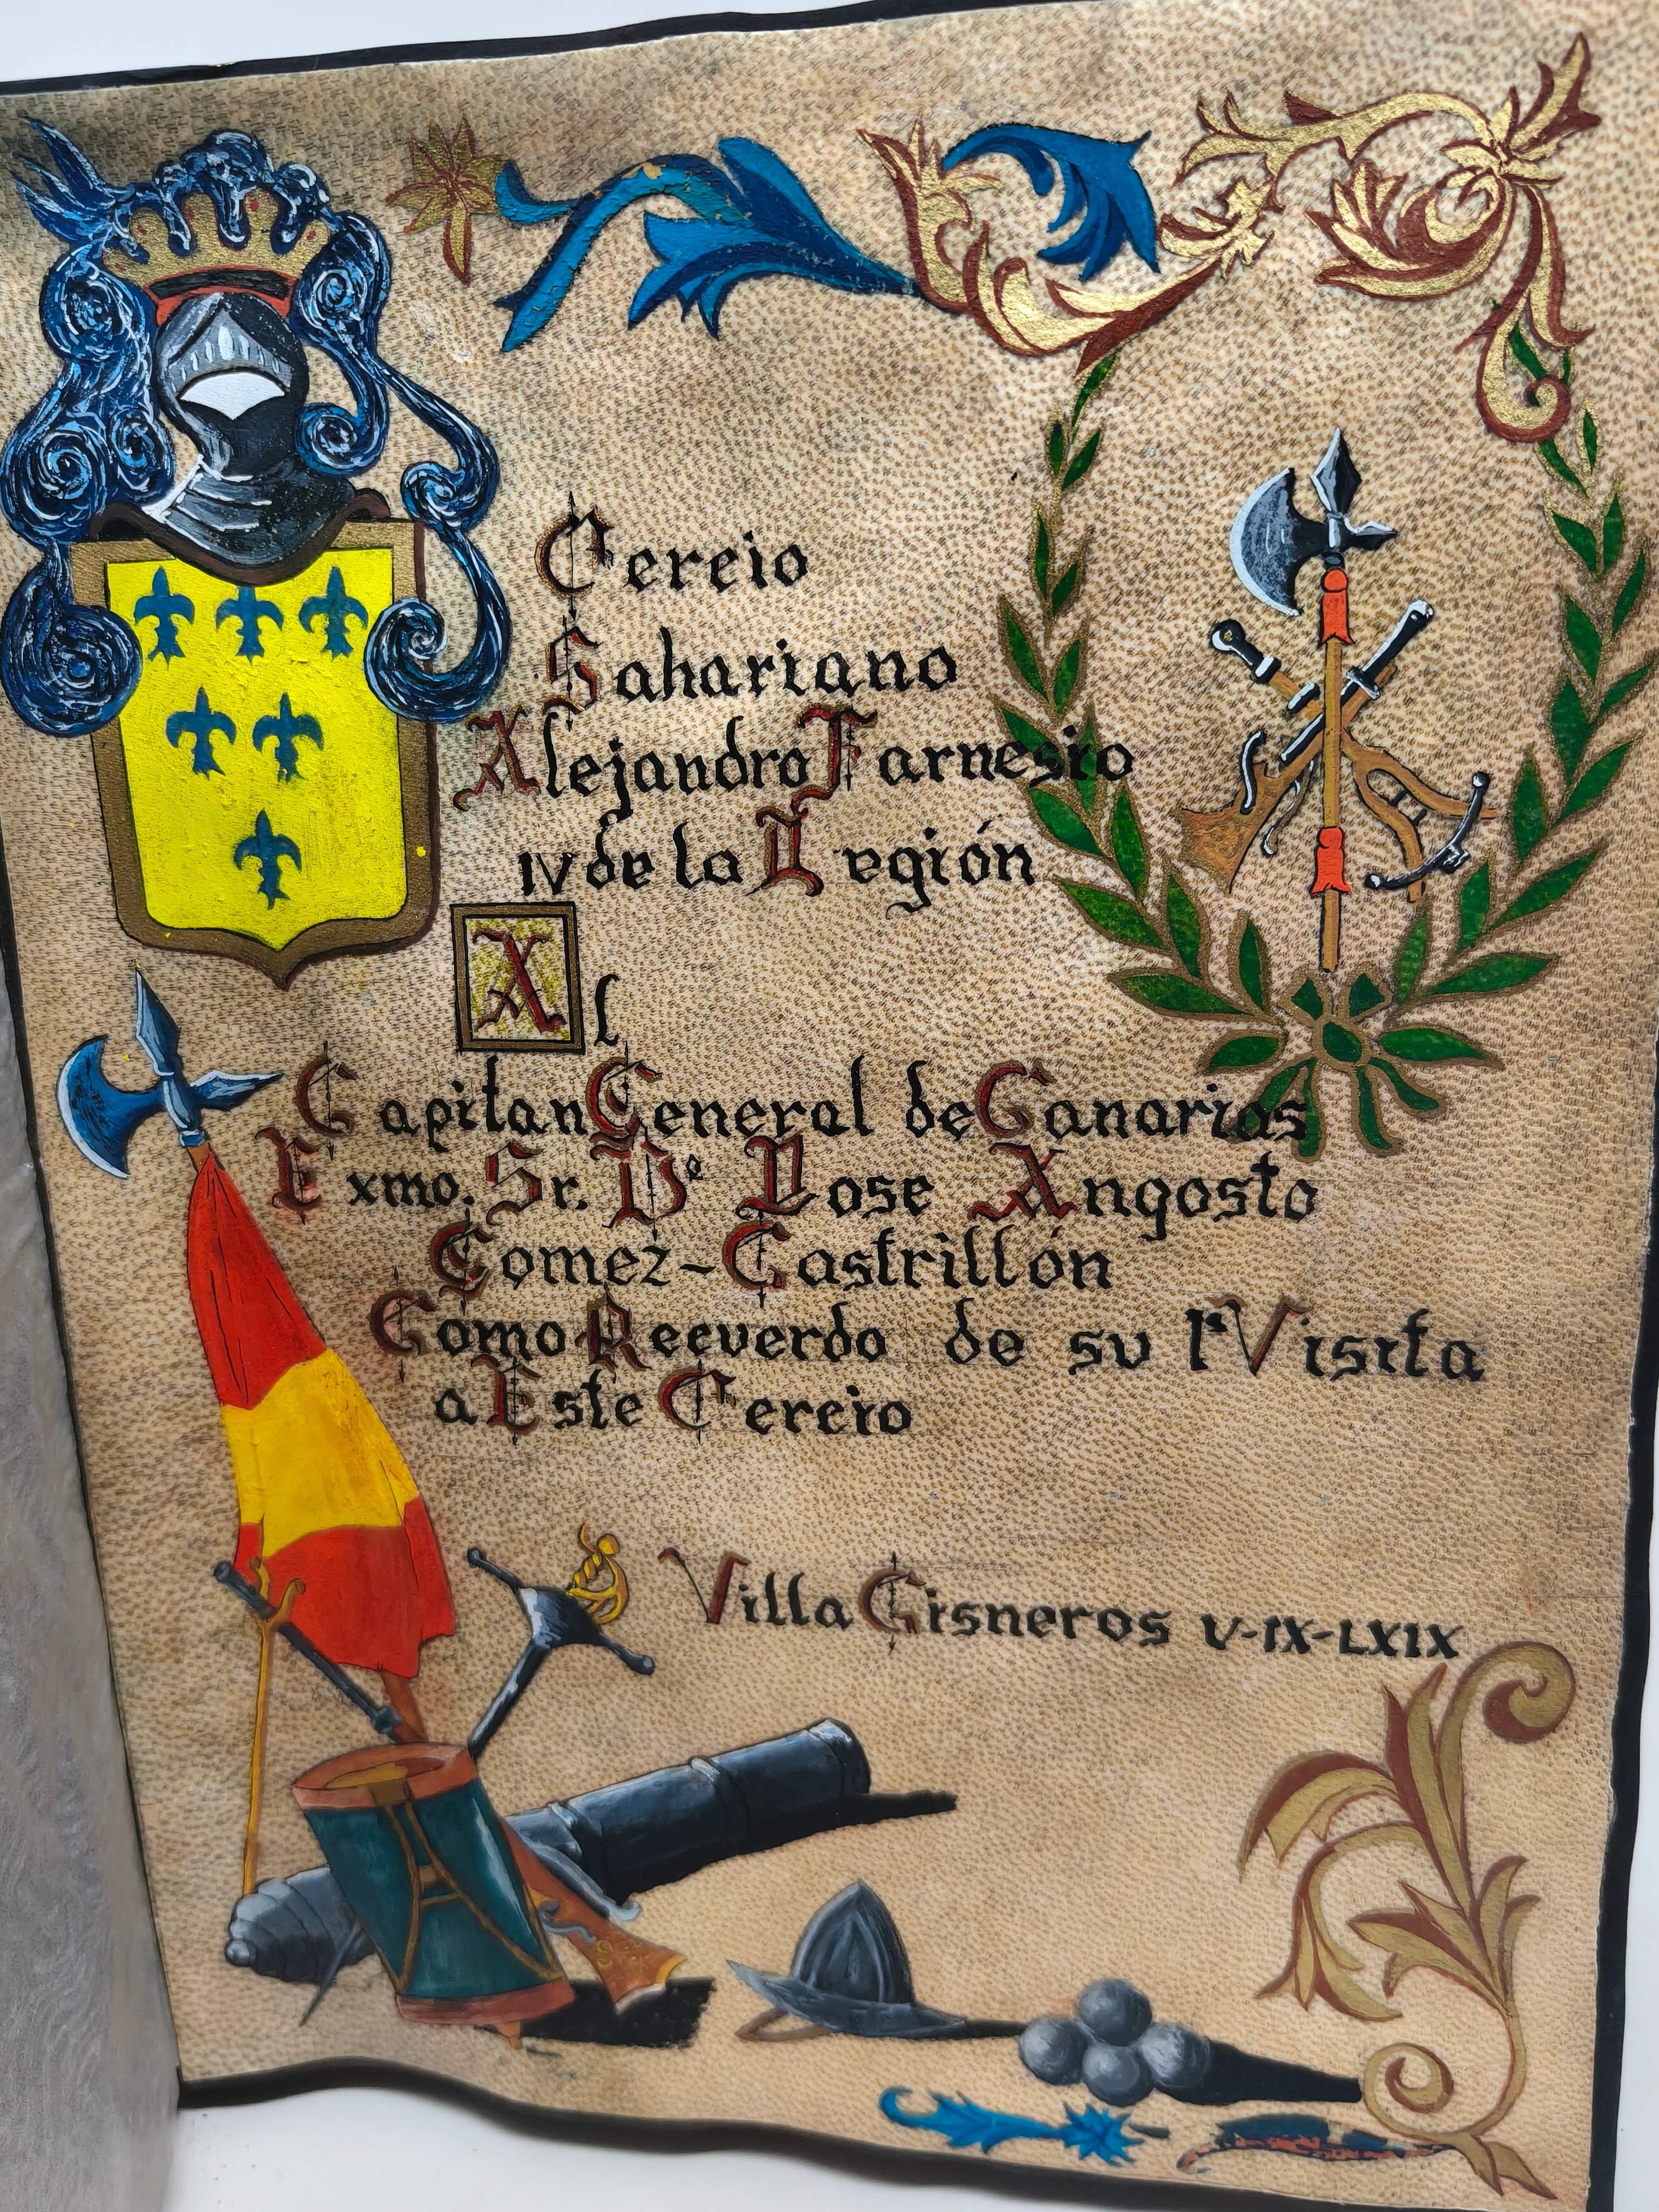 Tercio
Sahariano
Alejandro Farnesio
IV de la Legión
Al
Capitan General de Canarias
Exmo. Sr. Dº Jose Angosto
Gomez-Castrillón
Como Recuerdo de su 1ª Visita
a Este Tercio
Villa Cisneros V-IX-LXIX